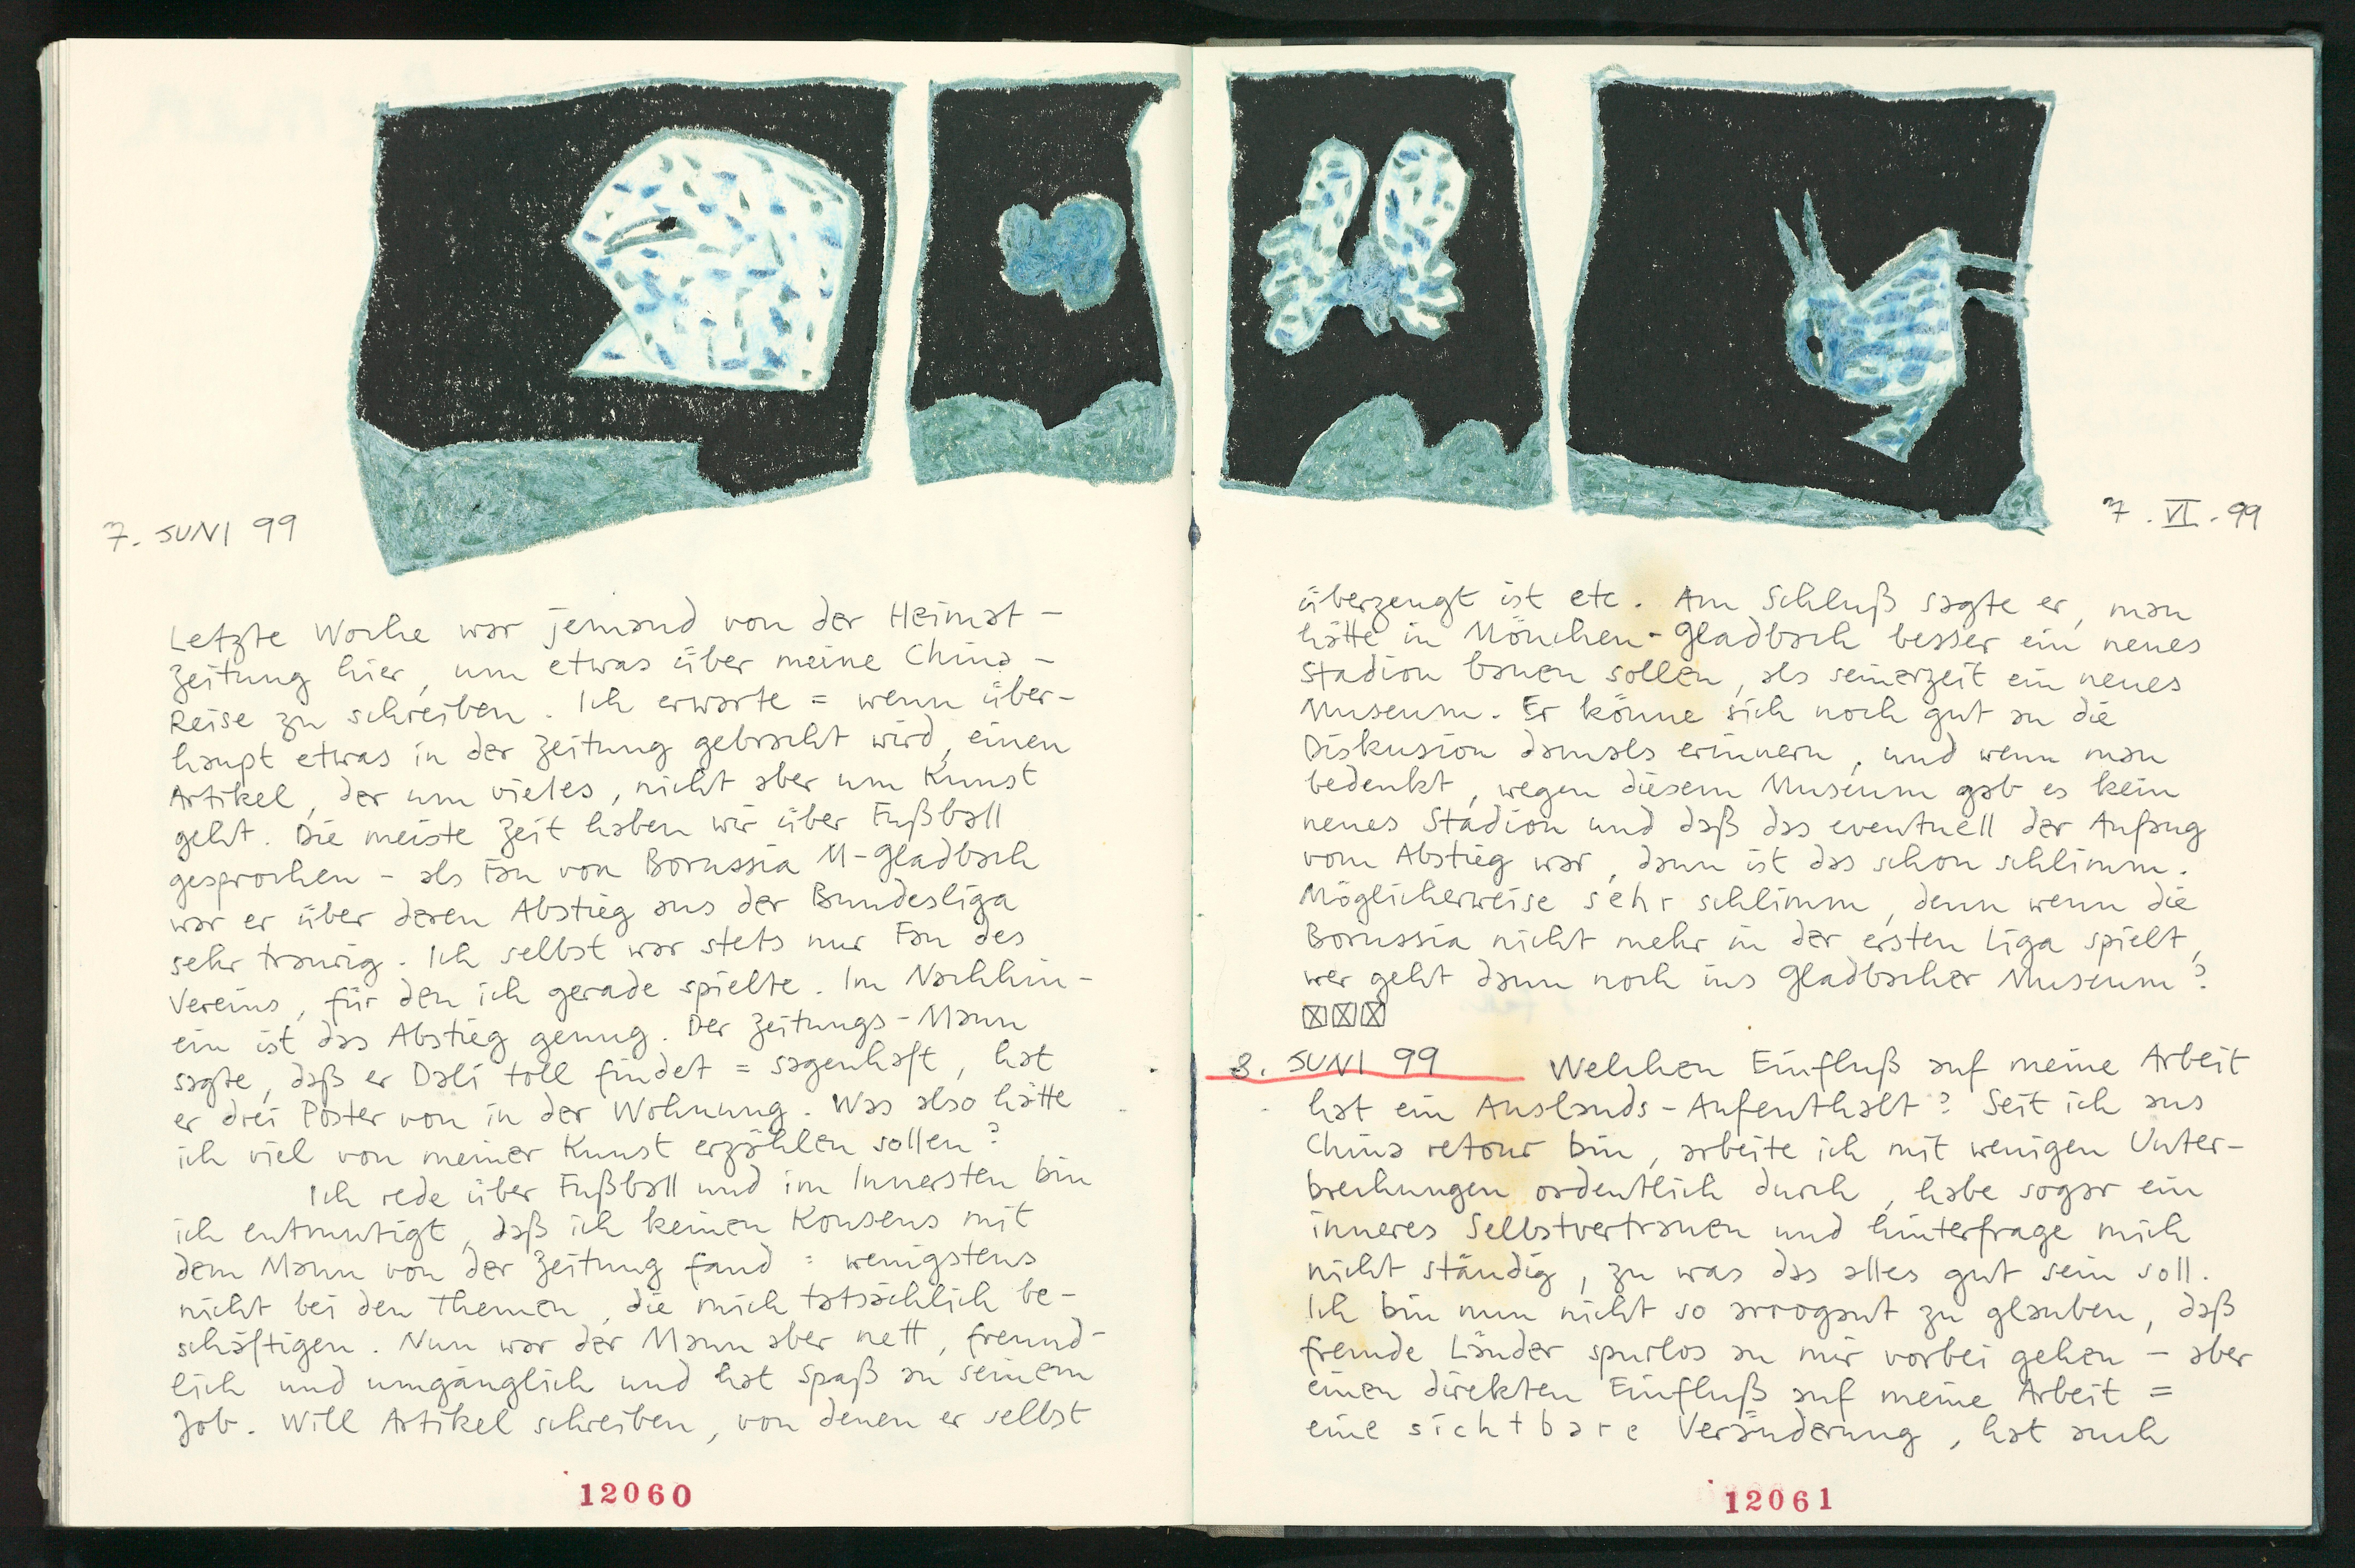 7. JUNI 99
Letzte Woche war jemand von der Heimat-
Zeitung hier, um etwas über meine China-
Reise zu schreiben. Ich erwarte = wenn über-
haupt etwas in der Zeitung gebracht wird, einen
Artikel, der um vieles, nicht aber um Kunst
geht. Die meiste Zeit haben wir über Fußball
gesprochen - als Fan von Borussia M-Gladbach
war er über deren Abstieg aus der Bundesliga
sehr traurig. Ich selbst war stets nur Fan des
Vereins, für den ich gerade spielte. Im Nachhin-
ein ist das Abstieg genug. Der Zeitungs-Mann
sagte, daß er Dali toll findet = sagenhaft, hat
er drei Poster von in der Wohnung. Was also hätte
ich viel von meiner Kunst erzählen sollen?
Ich rede über Fußball und im Innersten bin
ich entmutigt, daß ich keinen Konsens mit
dem Mann von der Zeitung fand = wenigstens
nicht bei den Themen, die mich tatsächlich be-
schäftigen. Nun war der Mann aber nett, freund-
lich und umgänglich und hat Spaß an seinem
Job. Will Artikel schreiben, von denen er selbst
12060
7. VI. 99
überzeugt ist etc. Am Schluß sagte er, man
hätte in Mönchen-Gladbach besser ein neues
Stadion bauen sollen, als seinerzeit ein neues
Museum. Er könne sich noch gut an die
Diskusion damals erinnern, und wenn man
bedenkt, wegen diesem Museum gab es kein
neues Stadion und daß das eventuell der Anfang
vom Abstieg war, dann ist das schon schlimm.
Möglicherweise sehr schlimm, denn wenn die
Borussia nicht mehr in der ersten Liga spielt,
wer geht dann noch ins Gladbacher Museum?
8. JUNI 99 Welchen Einfluß auf meine Arbeit
hat ein Auslands-Aufenthalt? Seit ich aus
China retour bin, arbeite ich mit wenigen Unter-
brechungen ordentlich durch, habe sogar ein
inneres Selbstvertrauen und hinterfrage mich
nicht ständig, zu was das alles gut sein soll.
Ich bin nun nicht so arrogant zu glauben, daß
fremde Länder spurlos an mir vorbei gehen - aber
einen direkten Einfluß auf meine Arbeit =
eine sichtbare Veränderung, hat auch
12061